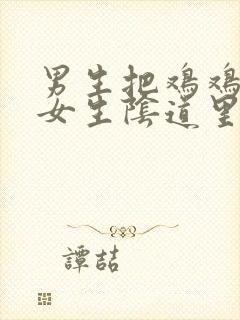 男生把鸡鸡
女生陰道里
譚喆